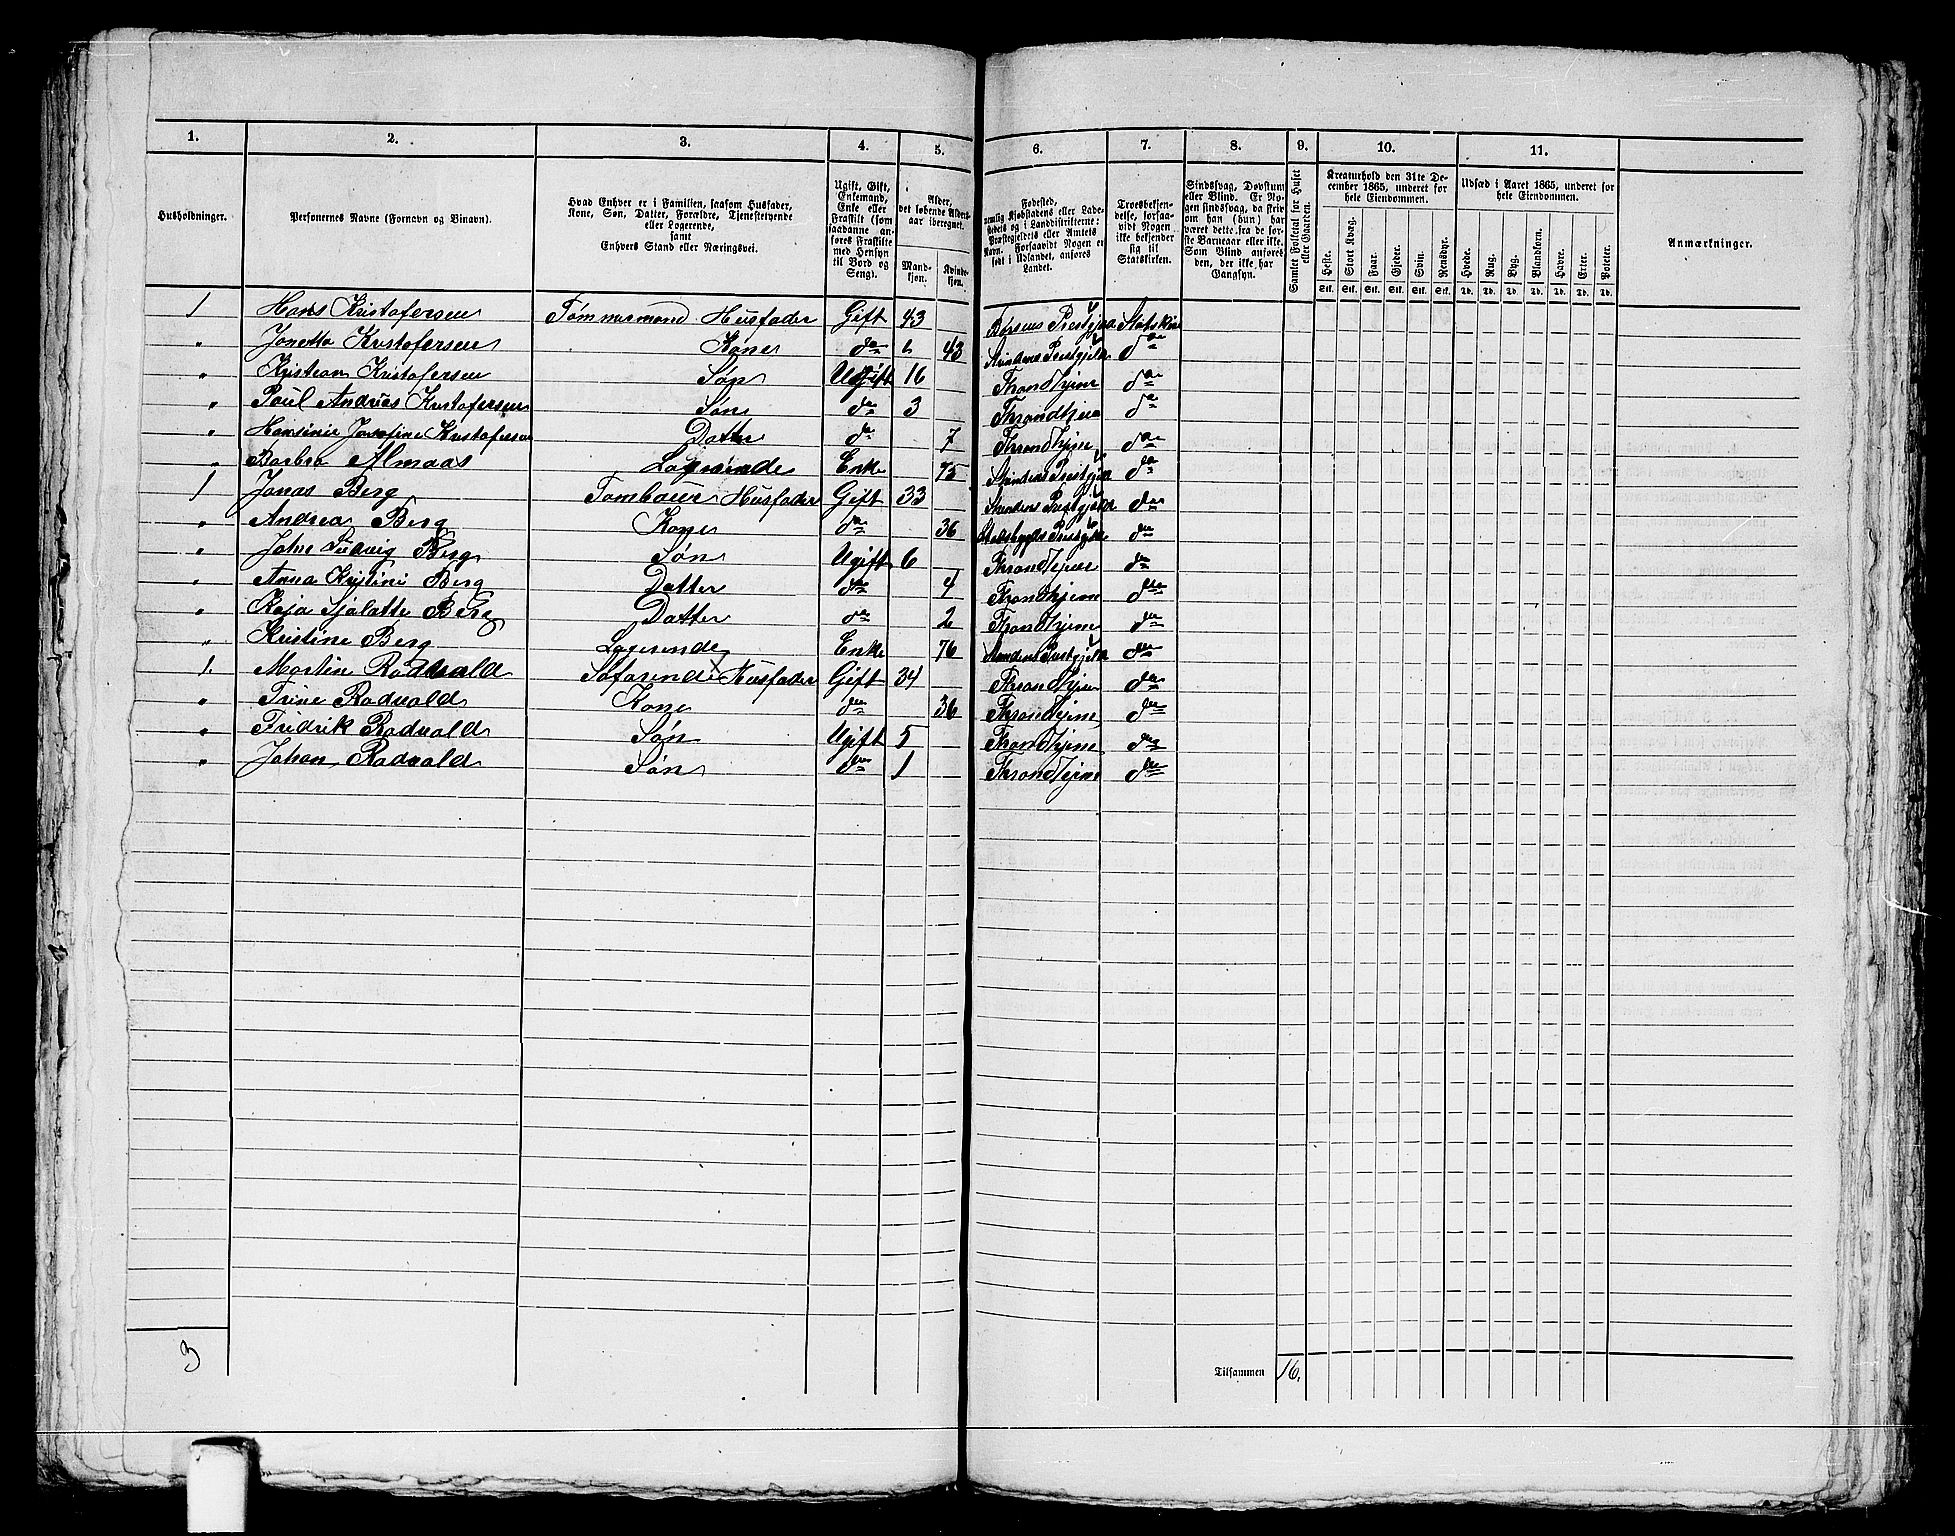 1. 2. 3. 4. 5. 6. 7. 8. 9. 10. 11.
Husholdninger.
Personernes Navne (Fornavn og Binavn).
Hvad Enhver er i Familien, saasom Husfader, Kone, Søn, Datter, Forældre, Tjenestetyende eller Logerende, samt Enhvers Stand eller Næringsvei.
Ugift, Gift, Enkemand, Enke eller Fraskilt (som saadanne anføres Fraskilte med Hensyn til Bord og Seng).
Alder, det løbende Aldersaar iberegnet.
Mandkjøn.
Kvindekjøn.
Fødested, nemlig Kjøbstadens eller Ladestedets og i Landdistrikterne: Præstegjeldets eller Amtets Navn. Forsaavidt Nogen er født i Udlandet, anføres Landet.
Troesbekjendelse, forsaavidt Nogen ikke bekjender sig til Statskirken.
Sindssvag, Døvstum eller Blind. Er Nogen sindssvag, da skrives om han (hun) har været dette fra de første Barneaar eller ikke. Som Blind anføres den, der ikke har Gangsyn.
Samlet Folketal for Huset eller Gaarden.
Kreaturhold den 31te December 1865, underet for hele Eiendommen.
Heste. Stort Kvæg. Faar. Gjeder. Svin. Rensdyr.
Stk. Stk. Stk. Stk. Stk. Stk.
Udsæd i Aaret 1865, underet for hele Eiendommen.
Hvede. Rug. Byg. Blandkorn. Havre. Erter. Poteter.
Td. Td. Td. Td. Td. Td. Td.
Anmærkninger.
1 Hans Kristofersen Tømmermand Husfader Gift 43 Børsens Prestgjæ Statskir
" Jonetta Kristofersen Kone do 43 Prestgjeld do
" Kristean Kristofersen Søn Ugift 16 Throndhjem do
" Poul Andreas Kristofersen Søn do 3 Throndhjem do
" Hansine Josefine Kristofersen Datter do 7 Throndhjem do
" Barbra Almaas Logerende Enke 75 Prestgjeld do
1 Jonas Berg Husfader Gift 33 Prestgjeld do
" Andrea Berg Kone do 36 Stadsbygds Prestgjeld do
" Johne Ludvig Berg Søn Ugift 6 Throndhjem do
" Anna Kristine Berg Datter do 4 Throndhjem do
" Kaja Sjalatte Berg Datter do 2 Throndhjem do
" Kristine Berg Logerende Enke 76 Prestgjeld do
1. Martin Rodvald Søfarende Husfader Gift 34 Throndhjem do
" Trine Rodvald Kone do 36 Throndhjem do
" Fridrik Rodvald Søn Ugift 5 Throndhjem do
" Johan Rodvald Søn do 1 Throndhjem do
3
Tilsammen 16.